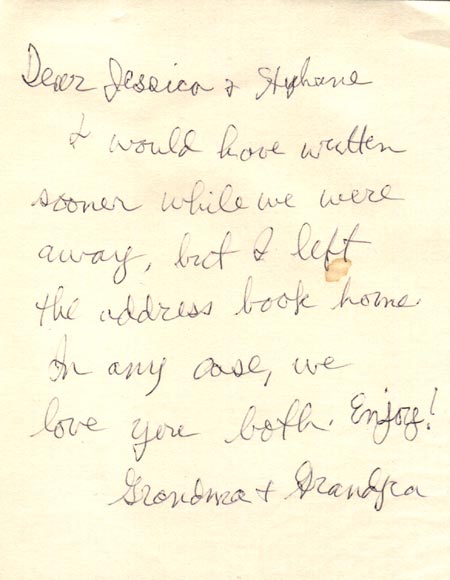 Dear Jessica & Stephane
I would have written
sooner while we were
away, but I left
the address book home.
In any case, we
love you both. Enjoy!
Grandma + Grandpa